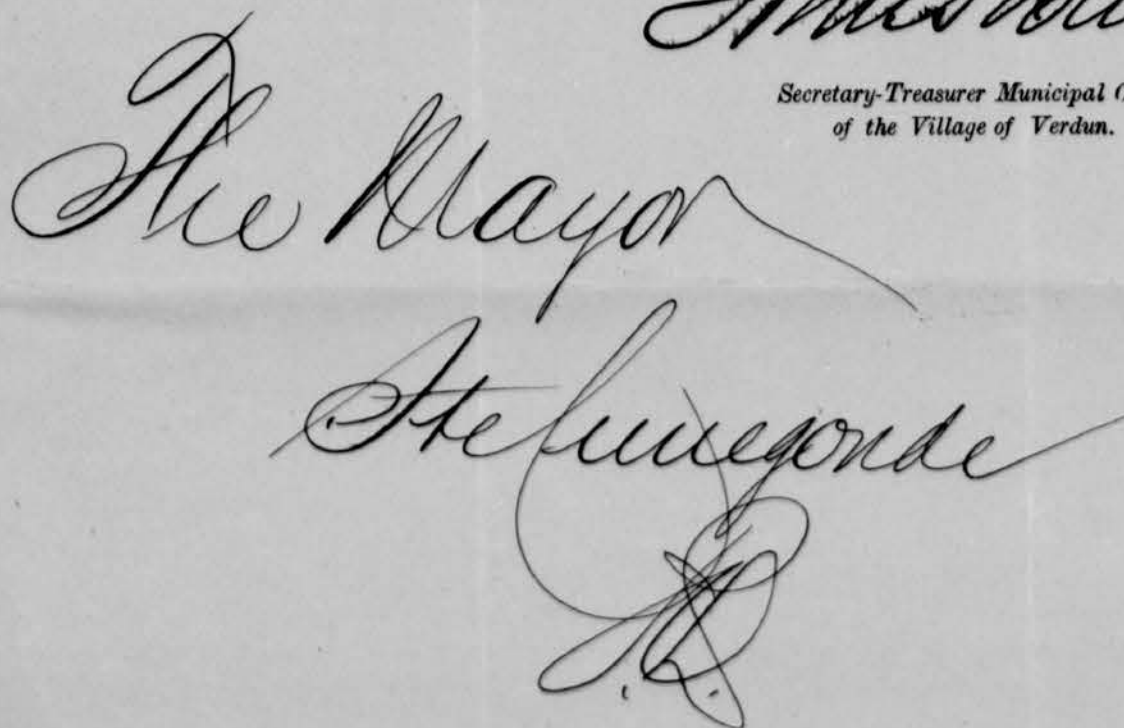 Secretary-Treasurer Municipal
of the Village of Verdun.
The Mayor
Ste Cunegonde
P.Q.